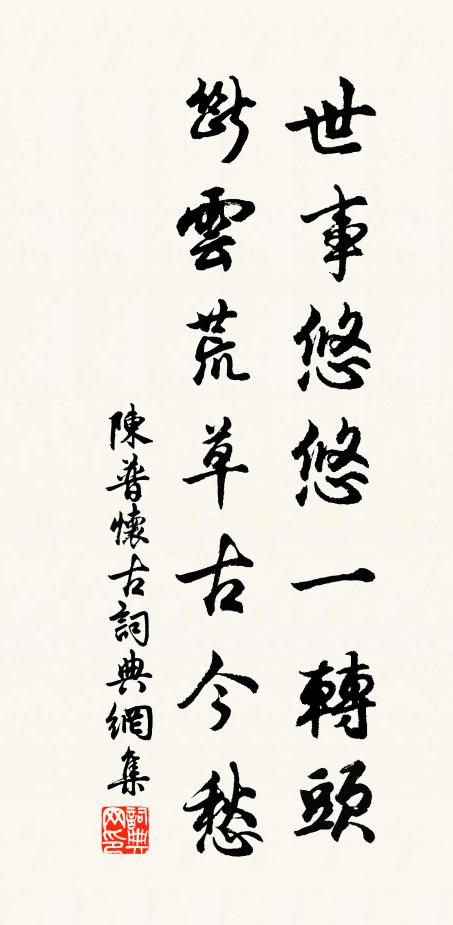 世事悠悠一轉頭
斷雲荒草古今愁
陳普懷古詞典網集
詞典
网印